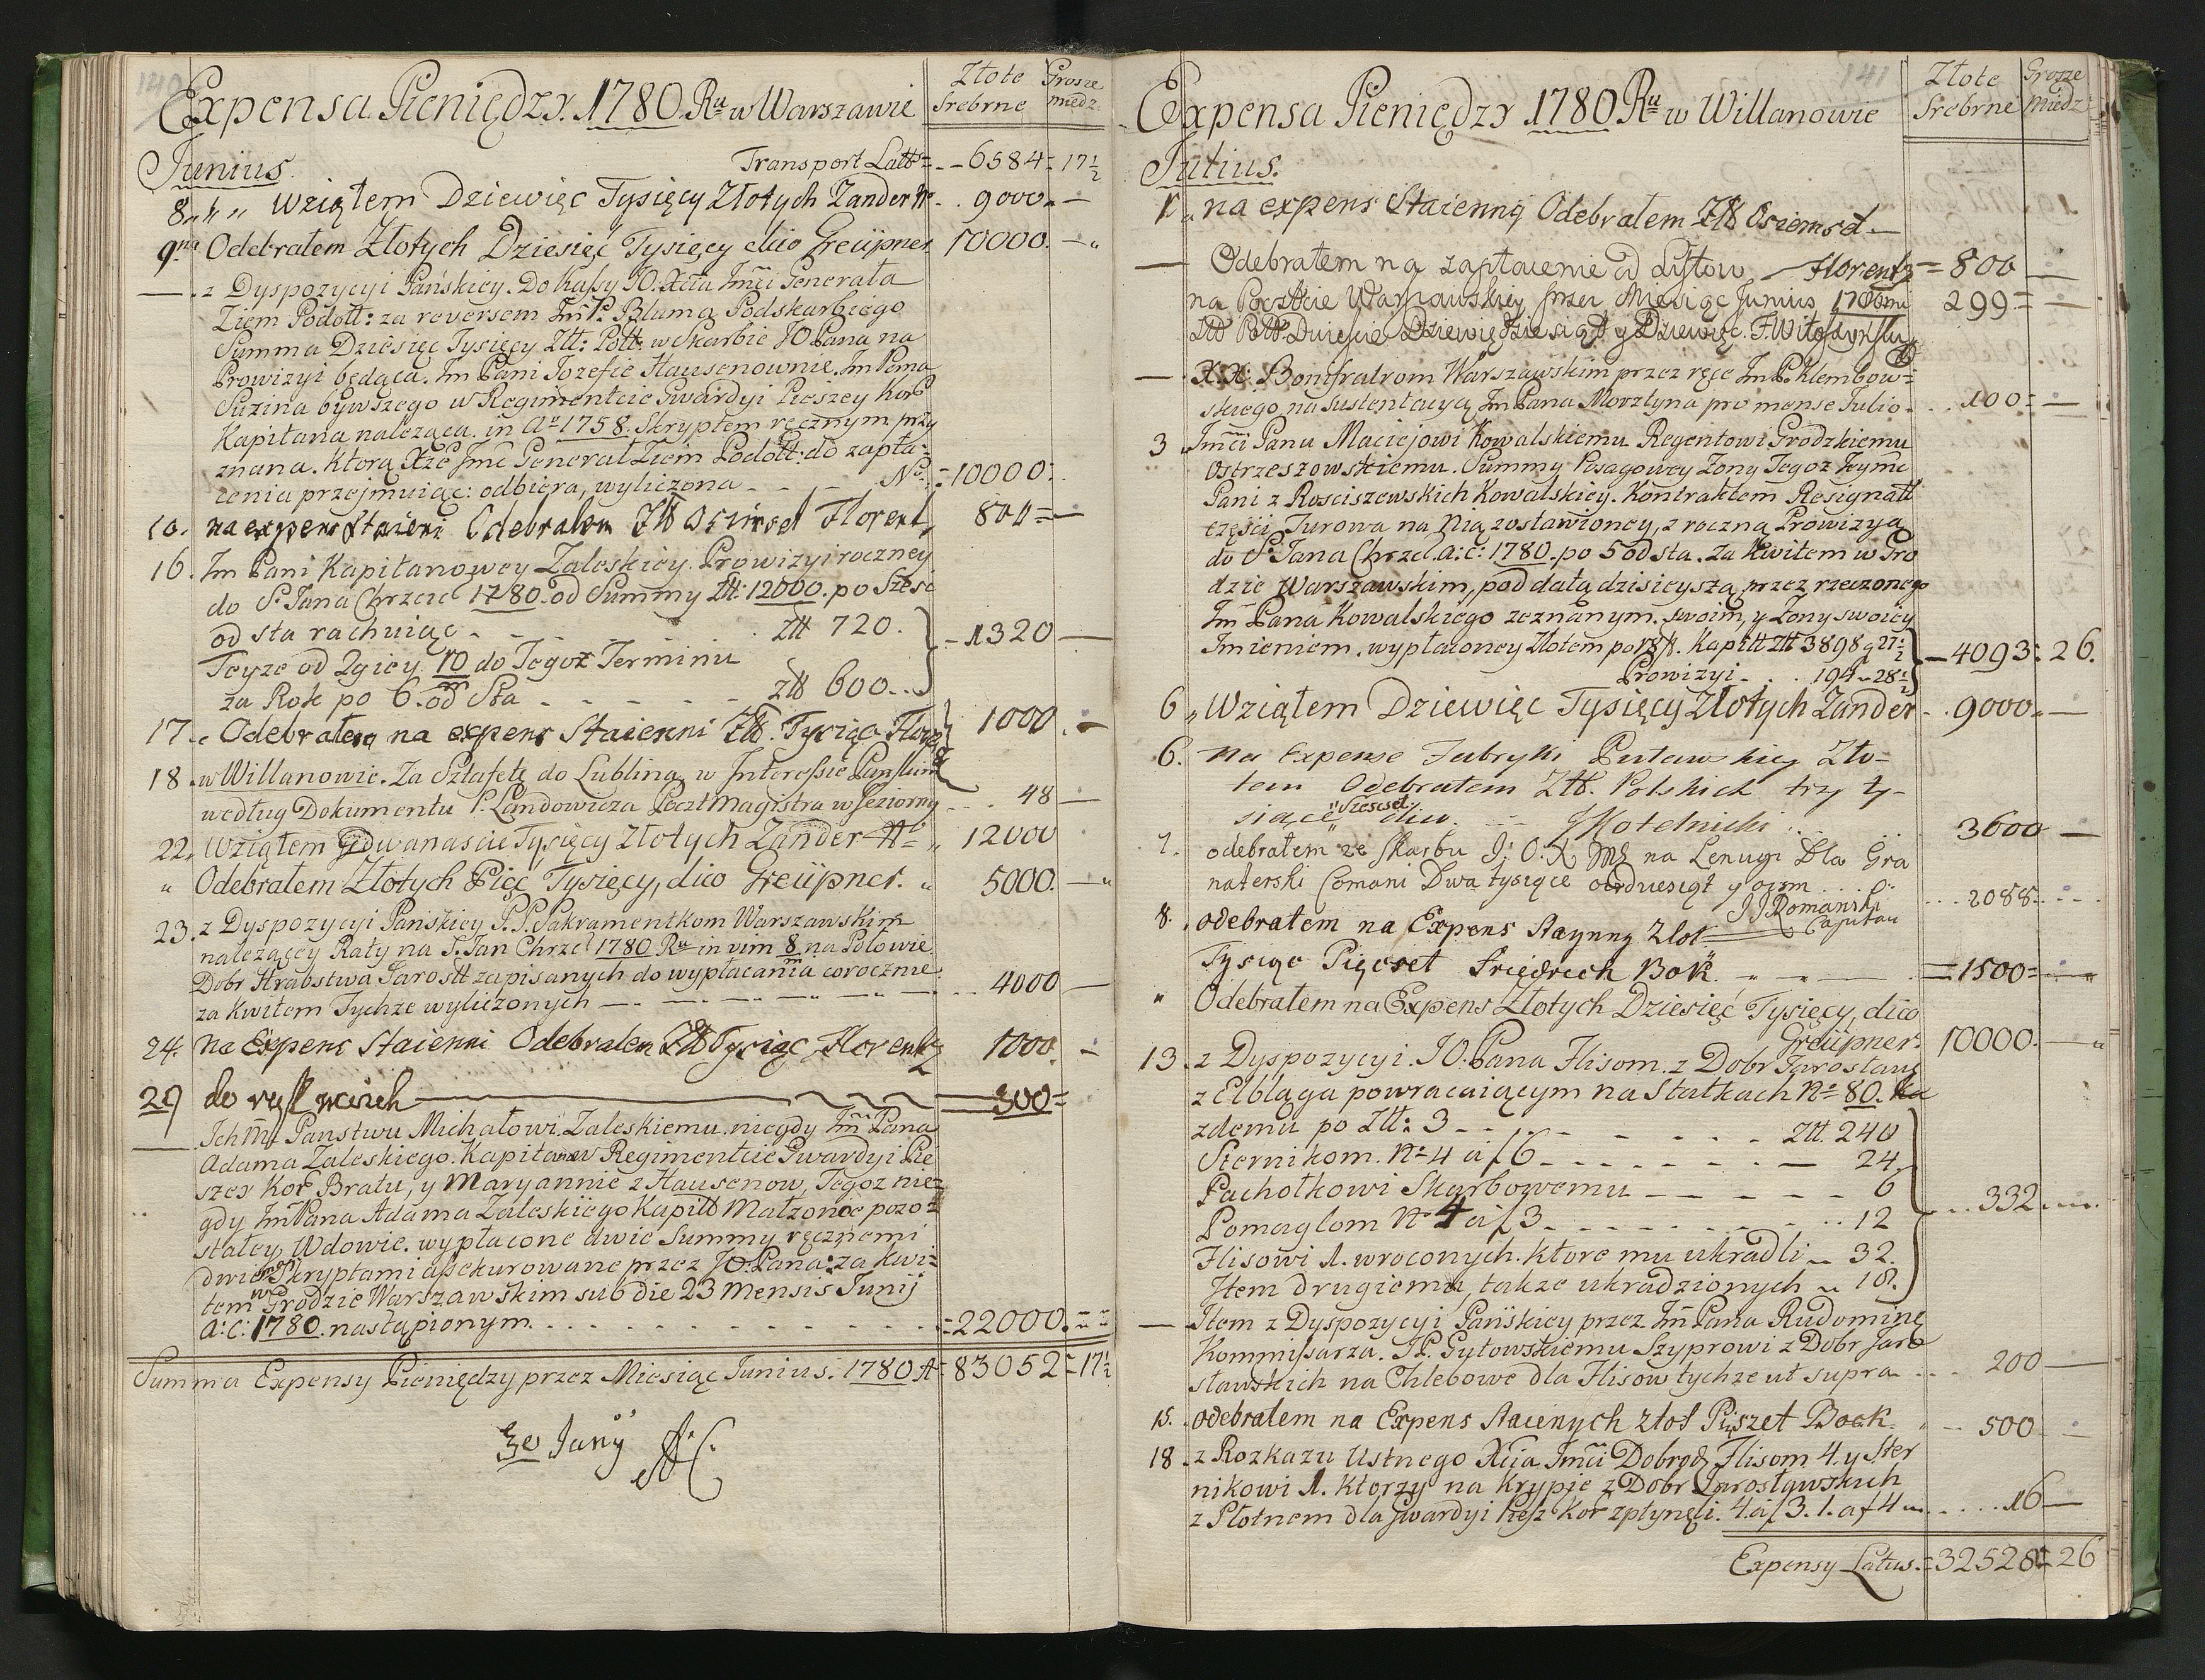 140
Expensa Pieniędzy. 1780. Ru w Warszawie
Złote Srebrne
Grosze miedz:
Junius.
Transport Latts = 6584 = 17½
8 „ Wziątem Dziewięc Tysięcy Złotych Zander 9000 —
9na Odebratem Złotych Dziesięć Tysięcy dico Greüpner. 10000. —
— z Dyspozycyi Pańskiey. Do Kassy JO. Xcia Jmći Generała
Ziem Podoll: za reversem Jm P. Bluma Podskarbiego
Summa Dziesięc Tysięcy Złł: Poll: w Skarbie JO Pana na
Prowizyi będąca. Jm Pani Jozefie Hausenownie. Jm Pana
Suzina bywszego w Regimencie Gwardyi Pieszey Kor
Kapitana należąca. in Ao 1758. Skryptem ręcznym przy
znana. Ktorą Xże Jmć Generał Ziem Podoll: do zapła=
cenia przejmuiąc: odbiera, wyliczona No = 10000:
10. na expens Staieni Odebralem Złł Osimset Florent 800 = —
16. Jm Pani Kapitanowey Zaleskiey. Prowizyi roczney
do S. Jana Chrzcic 1780. od Summy Złł: 12000. po Szesc
od sta rachuiąc . . . Złł 720.
Teyze od 2giey 10/m do Tegoż Terminu
za Rok po 6. od Sta — Złł 600. . – 1320 —
17. Odebralem na expens Staienni Złł. Tysiąc Florentz 1000 . —
18. w Willanowie. Za Sztafetę do Lublina, w Interessie Pańskim
według Dokumentu P. Landowicza Pocztmagistra w Jeziorny . . 48 —
22. Wziątem dwanascie Tysięcy Złotych Zander 12000
„ Odebratem Złotych Pięć Tysięcy, dico Greüpner. „ 5000. —
23. z Dyspozycyi Pańskiey P.P. Sakramentkom Warszawskim
należącey Raty na S. Jan Chrzci 1780 Ru in vim 8/m na Połowie
Dobr Hrabstwa Jarosłł zapisanych do wypłacania corocznie
za Kwitem Tychże wyliczonych — 4000 —
24. na Expens Staienni Odebralem Złł Tysiąc Florentz 1000. —
29 do — 300 =
— Ich Mć Panstwu Michałowi Zaleskiemu niegdy Jm Pana
Adama Zaleskiego. Kapitana w Regimentcie Gwardyi Pie
szey Kor Bratu, y Maryannie z Hausenow, Tegoż nie=
gdy Jm Pana Adama Zaleskiego Kapitt Małżonce pozo=
stałey Wdowie. wypłacone dwie Summy ręcznemi
dwiema Skryptami assekurowane przez JO. Pana: za kwi=
tem w Grodzie Warszawskim sub die 23 mensis Junij
a: c: 1780. nastąpionym. . . . = 22000. =
Summa Expensy Pieniędzy przez Miesiąc Junius. 1780 A = 83052 = 17½
30 Junij AC
141
Expensa Pieniędzy 1780 Ru w Willanowie
Złote Srebrne
Grosze Miedz:
Julius.
1. na expens Staienną Odebratem Złł Osiemset —
Florentz = 800 —
— Odebratem na zapłacenie od Lystow
na Poczcie Warszawskiey przez Miesiąc Junius 1780mi 299 = —
Złł Poll: Dwieście Dziewiędziesiąt y Dziewięć.
— X.X: Bonifratrom Warszawskim przez ręce Jm P. Klembow=
skiego na sustentacyą Jm Pana Morztyna pro mense Julio . . 100 = —
3. Jmći Panu Maciejowi Kowalskiemu Regentowi Grodzkiemu
Ostrzeszowskiemu. Summy Posagowey Zony Tegoż Jeymć
Pani z Rosciszewskich Kowalskiey. Kontraktem Resignatt
częsci Turowa na Nią zostawioney, z roczną Prowizyą
do S. Jana Chrzci. a: c: 1780. po 5 od sta. za Kwitem w Gro
dzie Warszawskim, pod datą dzisieyszą przez rzeczonego
Jm Pana Kowalskiego zeznanym. swoim, y Zony swoiey
Imieniem. wypłaconey Złotem po 18 f. Kapitt Złł 3898 g 27½
Prowizyi . . 194 – 28½ – 4093: 26.
6 „ Wziątem Dziewięc Tysięcy Złotych Zander . . 9000 „ —
6. Na Expense Fabryki Puławskiey Zło=
tem Odebratem Złł. Polskich trzy ty-
siące „Szescset„ dico. — J Kotelnicki . . 3600 —
7. odebratem ze Skarbu J: O: X Mć na Lenugi Dla Gra
naterski Comani Dwa tysiące osimdziesiąt y osim . . 2088 . .
JJ Romanski Capitan
8. odebratem na Expens Staynny Złot
Tysiąc Pięcset Friedrech Bok = 1500 =
„ Odebratem na Expens Złotych Dziesięć Tysięcy, dico
Greüpner. 10000. —
13. z Dyspozycyi. JO. Pana Flisom. z Dobr Jarosław
z Elbląga powracaiącym na Statkach No 80. Ka
zdemu po Złł: 3 — Złł. 240
Sternikom. No 4 a f 6 — 24.
Pachołkowi Skarbowemu — 6
Pomaglom No 4 a f 3 — 12
Flisowi 1. wroconych. ktore mu ukradli „ 32.
Item drugiemu, także ukradzionych „ 18. . . 332 . .
— Item z Dyspozycyi Pańskiey przez Jm Pana Rudominę
Kommissarza. JP. Gutowskiemu Szyprowi z Dobr Jaro
sławskich na Chlebowe dla Flisow tychże ut supra . . 200 —
15. odebratem na Expens Staienych złot Piszet Boek — 500 —
18. z Rozkazu Ustnego Xcia Jmći Dobrodz Flisom 4. y Ster
nikowi 1. Ktorzy na Krypie z Dobr Jarosławskich
z Płotnem dla Gwardyi Piesz Kor zpłynęli. 4. a f 3. 1. a f 4 . . 16 —
Expensy Latus. = 32528 = 26